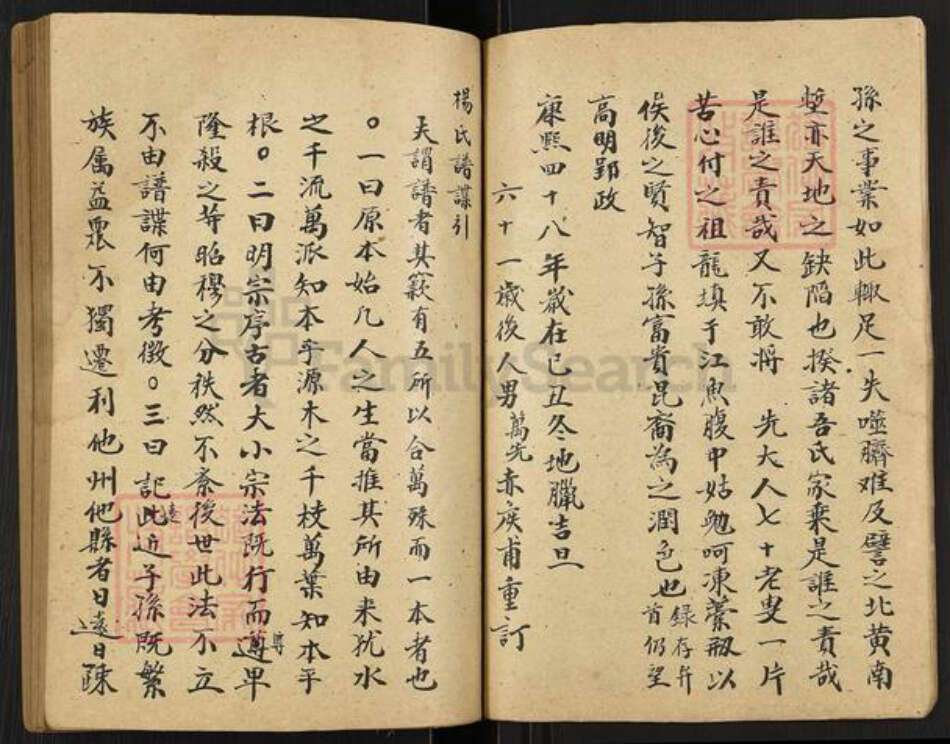 孫之事業如此輙足一失噬臍难及譬之北黄南
亦天地之缺陷也揆諸吾氏家乗是誰之責哉
是誰之責哉又不敢将 先大人七十老叟一片
苦心付之祖龍填于江魚腹中姑勉呵凍藁以
俟後之賢智子孫富貴昆裔為之潤色也錄存弁首仍望
高明郢政
康熙四十八年歲在己丑冬地臘吉旦
六十一歲後人男萬先赤候甫重訂
楊氏譜諜引
夫謂譜者其款有五所以合萬殊而一本者也
○一曰原本始凢人之生當推其所由来犹水
之千流萬派知本乎源木之千枝萬葉知本乎
根○二曰明宗序古者大小宗法既行而尊卑
隆殺之等昭穆之分秩然不紊後世此法不立
不由譜諜何由考徵○三曰記遠近子孫既繁
族属益衆不獨遷利他州他縣者日遠日疎
FamilySearch